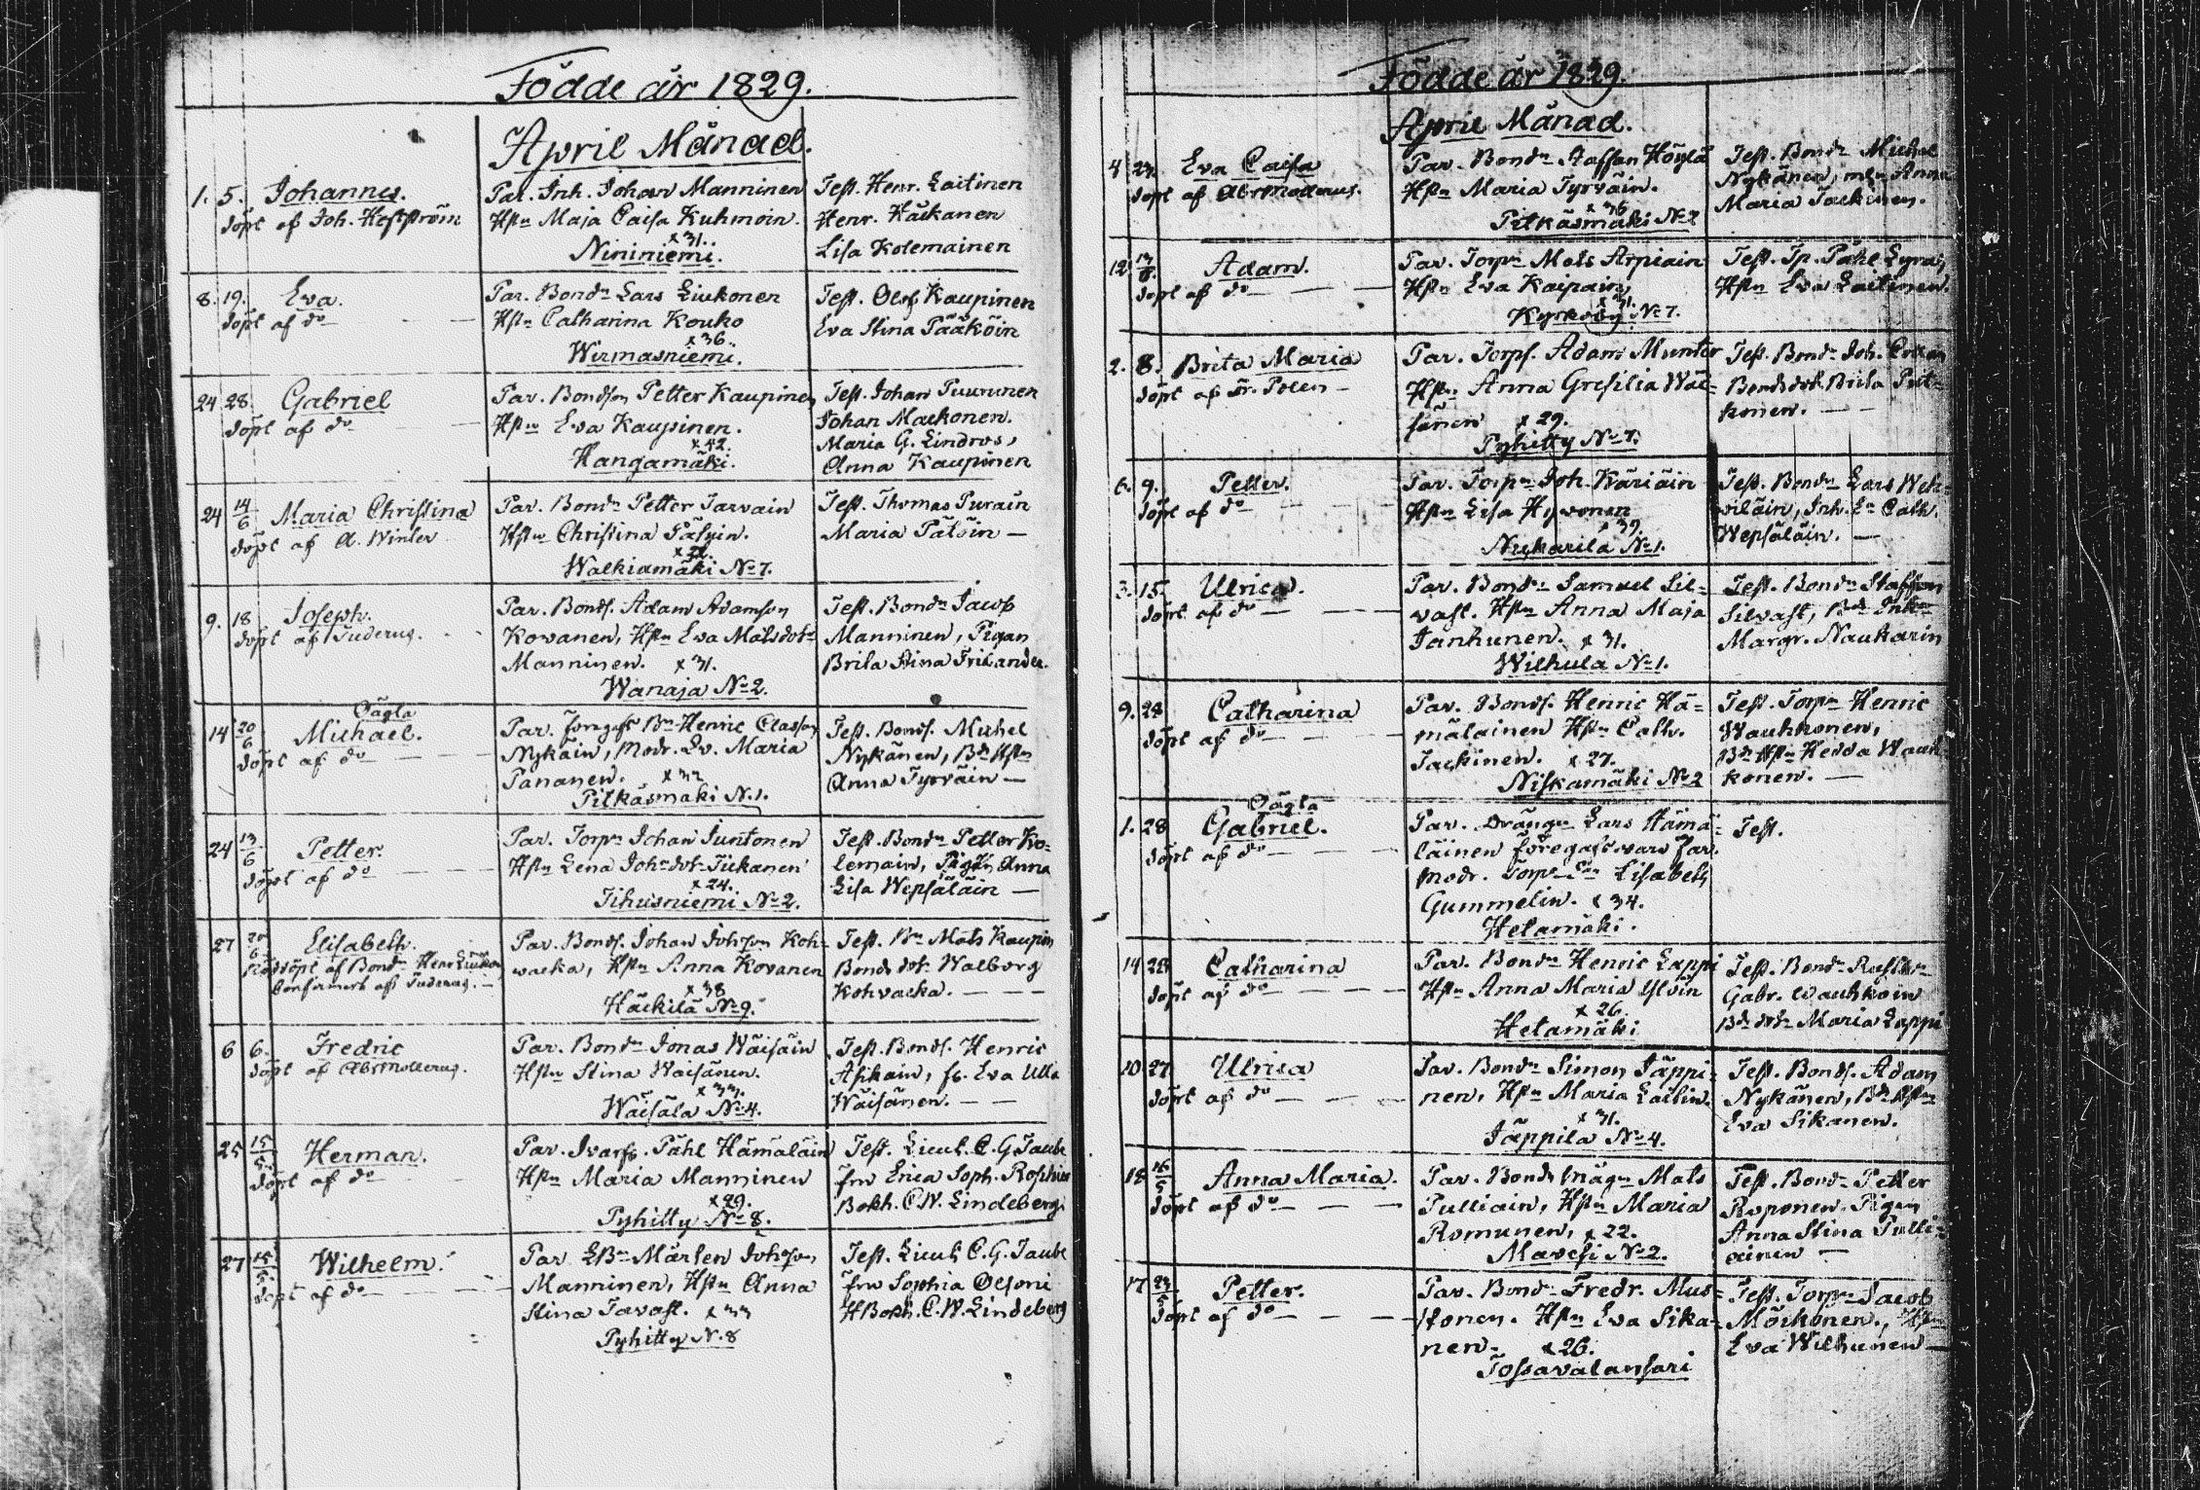 Födde år 1829.
April Månad.
1. 5. Johannes.
döpt af Joh. Hestström
Par. Inh. Johan Manninen
Hstn Maja Caisa Kuhmoin.
x 31.
Nininiemi.
Test. Henr. Laitinen
Henr. Häckanen
Lisa Kolemainen
8. 19. Eva.
döpt af do
Par. Bondn Lars Liukonen
Hstn Catharina Kouko
x 36.
Wirmasniemi.
Test. Olof Kaupinen
Eva Stina Pääköin
24 28. Gabriel
döpt af do
Par. Bondson Petter Kaupinen
Hstn Eva Kaupinen.
x 42.
Hangamäki.
Test. Johan Tuurunen
Johan Mackonen.
Maria G. Lindros,
Anna Kaupinen
24 14/6 Maria Christina
döpt af A. Winter
Par. Bondn Petter Tarvain
Hstn Christina Pälsin.
Walkiamäki No 7.
Test. Thomas Purain
Maria Pälsin —
9. 18 Joseph.
döpt af Tuderus.
Par. Bonds. Adam Adamson
Kovanen, Hstn Eva Matsdotr
Manninen. x 31.
Wanaja No 2.
Test. Bondn Jacob
Manninen, Pigan
Brita Stina Frilander.
Oägta
14 20/6 Michael.
döpt af do
Par. föregifs Bn Henric Classon
Nykäin, Modr. Ev. Maria
Pananen. x 32
Pitkäsmäki N. 1.
Test. Bonds. Michel
Nykänen, Bds Hstn
Anna Tyrväin —
24 13/6 Petter.
döpt af do
Par. Torpn Johan Juntonen
Hstn Lena Johsdotr Tickanen
x 24.
Jihusniemi No 2.
Test. Bondn Petter Ko-
lemain, Pign Anna
Lisa Wepsäläin —
27 20/6 Elisabeth.
Nöddöpt af Bondn Henr Liukon
Confirmerk af Tuderus. —
Par. Bonds. Johan Johsson Koh-
wacka, Hstn Anna Kovanen
x 38
Häckilä No 9.
Test. Bn Mats Kaupin
Bonds dotr Walborg
Kohvacka. — — —
6 6. Fredric
döpt af Abr Mollerus.
Par. Bondn Jonas Wäisäin
Hstn Stina Waisänen.
x 33.
Wäisälä No 4.
Test. Bonds. Henric
Asikain, fr. Eva Ulla
Wäisänen. — —
25 15/5 Herman.
döpt af do
Par. Svarfv. Påhl Hämäläin
Hstn Maria Manninen
x 29.
Pyhitty No 8.
Test. Lieut. C. G. Taube
fru Erica Soph. Roschier
Bokh. C. W. Lindeberg
27 15/5 Wilhelm.
döpt af do
Par. LBn Mårten Johsson
Manninen, Hstn Anna
Stina Tavast. x 33
Pyhitty N. 8
Test. Lieut. C. G. Taube
fru Sophia Olsoni
H Bokh. C. W. Lindeberg
Födde år 1829.
April Månad.
4 24 Eva Caisa
döpt af Abr Mollerus.
Par. Bondn Staffan Höylä
Hstn Maria Tyrväin.
x 36
Pitkäsmäki No 2
Test. Bondn Michel
Nykänen, mln Anna
Maria Jackinen.
12 Adam.
döpt af do
Par. Torpn Mats Arpiain
Hstn Eva Kaipain,
x 31.
Kyrkoby No 7.
Test. Tp. Påhl Lyra,
Hstn Eva Laitinen.
2. 8. Brita Maria
döpt af Fr. Polen —
Par. Torps. Adam Munter
Hstn Anna Gresilia Wäi-
sänen x 29.
Pyhitty No 7.
Test. Bondn Joh.
Bonds dotr Brita Put-
konen. — —
6. 9. Petter.
döpt af do
Par. Torpn Joh. Käriäin
Hstn Lisa Hyvonen
x 39.
Nykarila No 1.
Test. Bondn Lars Weh-
viläin, Inh. En Cath.
Wepsäläin. —
3. 15. Ulrica.
döpt af do
Par. Bondn Samuel Sil-
vast. Hstn Anna Maja
Janhunen. x 31.
Wilhula No 1.
Test. Bondn Staffan
Silvast, Bds
Margr. Naukarin
9. 28 Catharina
döpt af do
Par. Bonds. Henric Hä-
mälainen Hstn Cath.
Jackinen. x 27.
Niskamäki No 2
Test. Torpn Henric
Wauhkonen,
Bds Hstn Hedda Wauh-
konen. —
Oägta
1. 28 Gabriel.
döpt af do
Par. Drängn Lars Hämä-
läinen föregafs vara far.
modr. Torps En Lisabeth
Gummelin. x 34.
Hetamäki.
Test.
14 28 Catharina
döpt af do
Par. Bondn Henric Lappi
Hstn Anna Maria Ylöin
x 26.
Hetamäki
Test. Bondn Rustr
Gabr. Wauhkoin
Bds dotr Maria Lappi
10 27 Ulrica
döpt af do
Par. Bondn Simon Jäppi-
nen, Hstn Maria Laitin.
x 31.
Jäppilä No 4.
Test. Bonds. Adam
Nykänen, Bds Hstn
Eva Sikanen.
18 16/5 Anna Maria.
döpt af do
Par. Bonds mågn Mats
Pulliain, Hstn Maria
Romunen, x 22.
Mavesi No 2.
Test. Bondn Petter
Roponen. Pigan
Anna Stina Pulli-
ainen —
17 23/5 Petter.
döpt af do
Par. Bondn Fredr. Mus-
tonen. Hstn Eva Sika-
nen. x 26.
Tossavalansari
Test. Torpn Jacob
Möickonen.,
Eva Wilhunen —